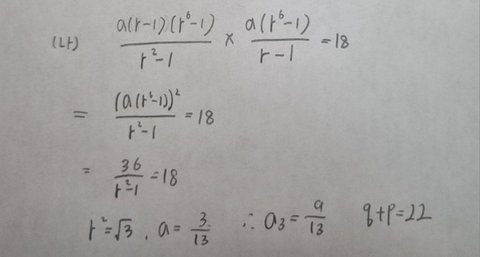 (나) a(r-1)(r⁶-1)/(r²-1) × a(r⁶-1)/(r-1) = 18
= (a(r⁶-1))²/(r²-1) = 18
= 36/(r²-1) = 18
r²=√3, a = 3/13 ∴ a₃ = 9/13 q+p=22